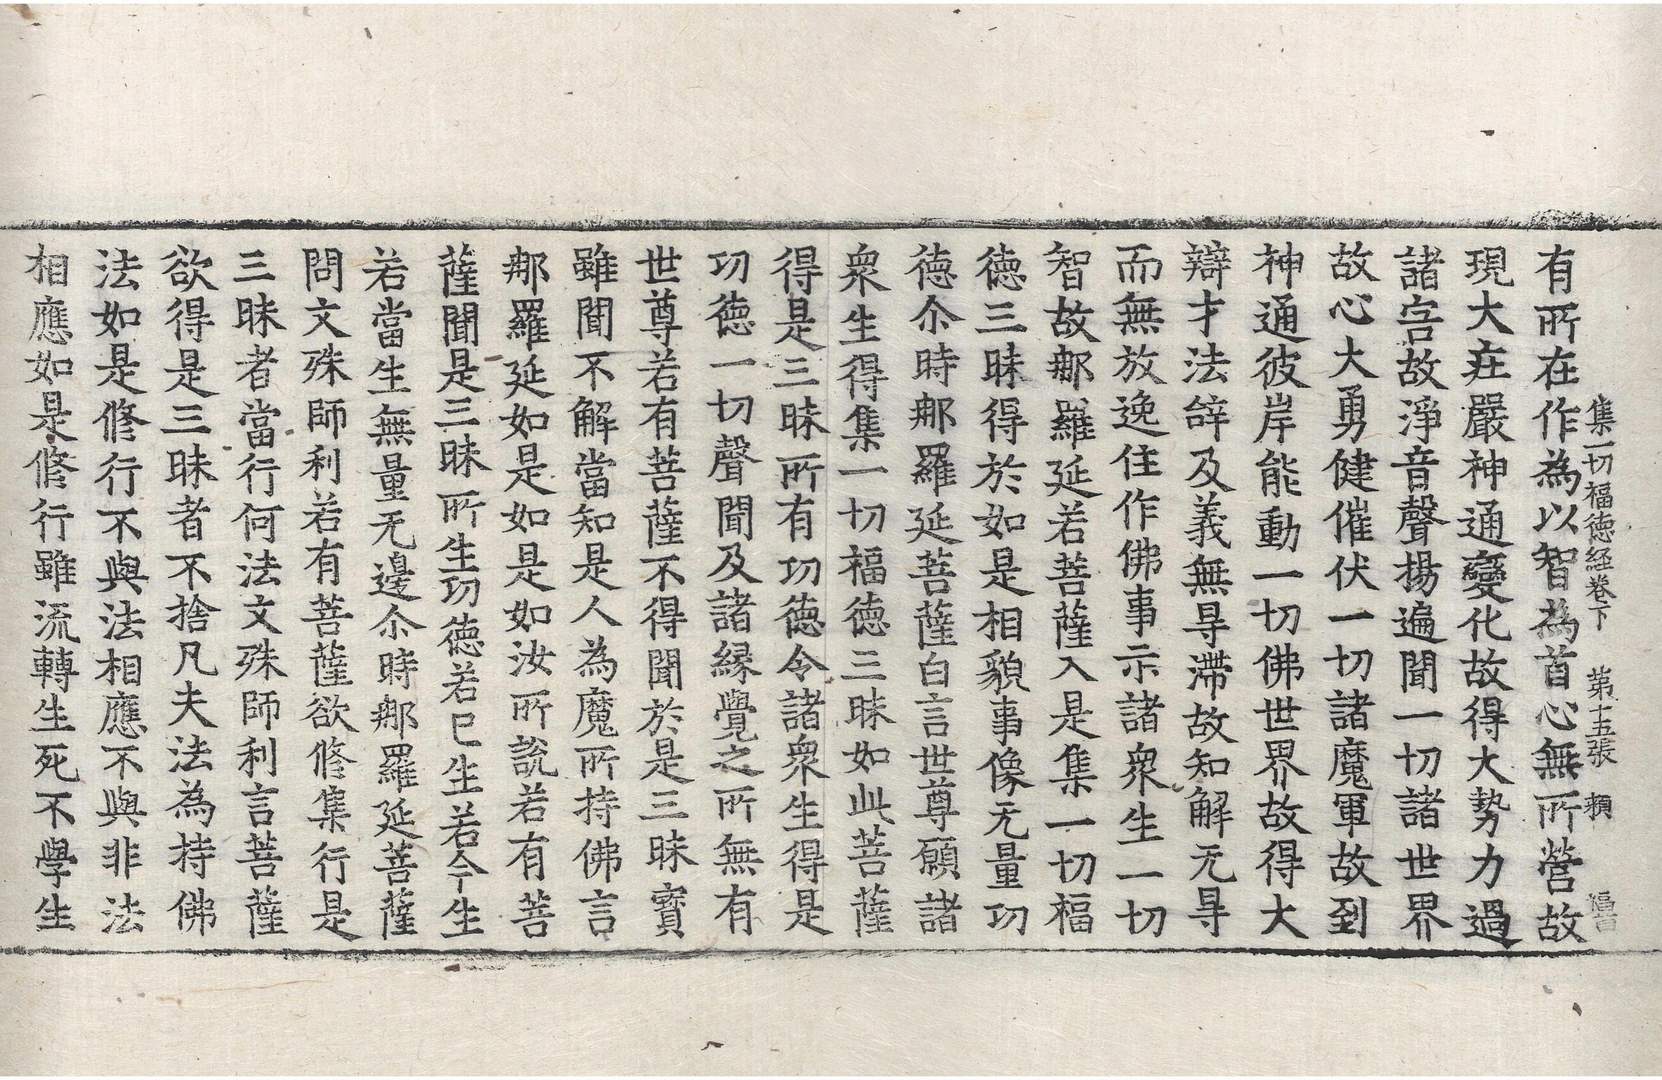 集一切福德経卷下 第十五張 頼
有所在作為以智為首心無所營故
現大疘嚴神通變化故得大勢力過
諸㝐故淨音聲揚遍聞一切諸世界
故心大勇健催伏一切諸魔軍故到
神通彼岸能動一切佛世界故得大
辯才法辝及義無㝵滯故知解无㝵
而無放逸住作佛事示諸衆生一切
智故郍羅延若菩薩入是集一切福
德三昧得於如是相貌事像无量功
德尒時郍羅延菩薩白言世尊願諸
衆生得集一切福德三昧如此菩薩
得是三昧所有功德令諸衆生得是
功德一切聲聞及諸縁覺之所無有
世尊若有菩薩不得聞於是三昧寳
雖聞不解當知是人為魔所持佛言
郍羅延如是如是如汝所說若有菩
薩聞是三昧所生功德若已生若今生
若當生無量无邊尒時郍羅延菩薩
問文殊師利若有菩薩欲修集行是
三昧者當行何法文殊師利言菩薩
欲得是三昧者不捨凡夫法為持佛
法如是修行不與法相應不與非法
相應如是修行雖流轉生死不學生